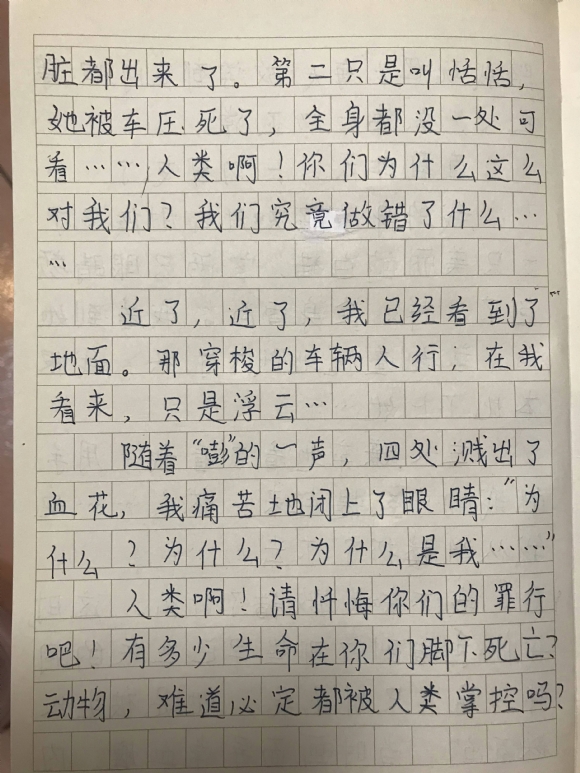 脏都出来了。第二只是叫恬恬，
她被车压死了，全身都没一处可
看……人类啊！你们为什么这么
对我们？我们究竟做错了什么…
…
近了，近了，我已经看到了
地面。那穿梭的车辆人行；在我
看来，只是浮云…
随着“嘭”的一声，四处溅出了
血花，我痛苦地闭上了眼睛：“为
什么？为什么？为什么是我……”
人类啊！请忏悔你们的罪行
吧！有多少生命在你们脚下死亡？
动物，难道必定都被人类掌控吗？